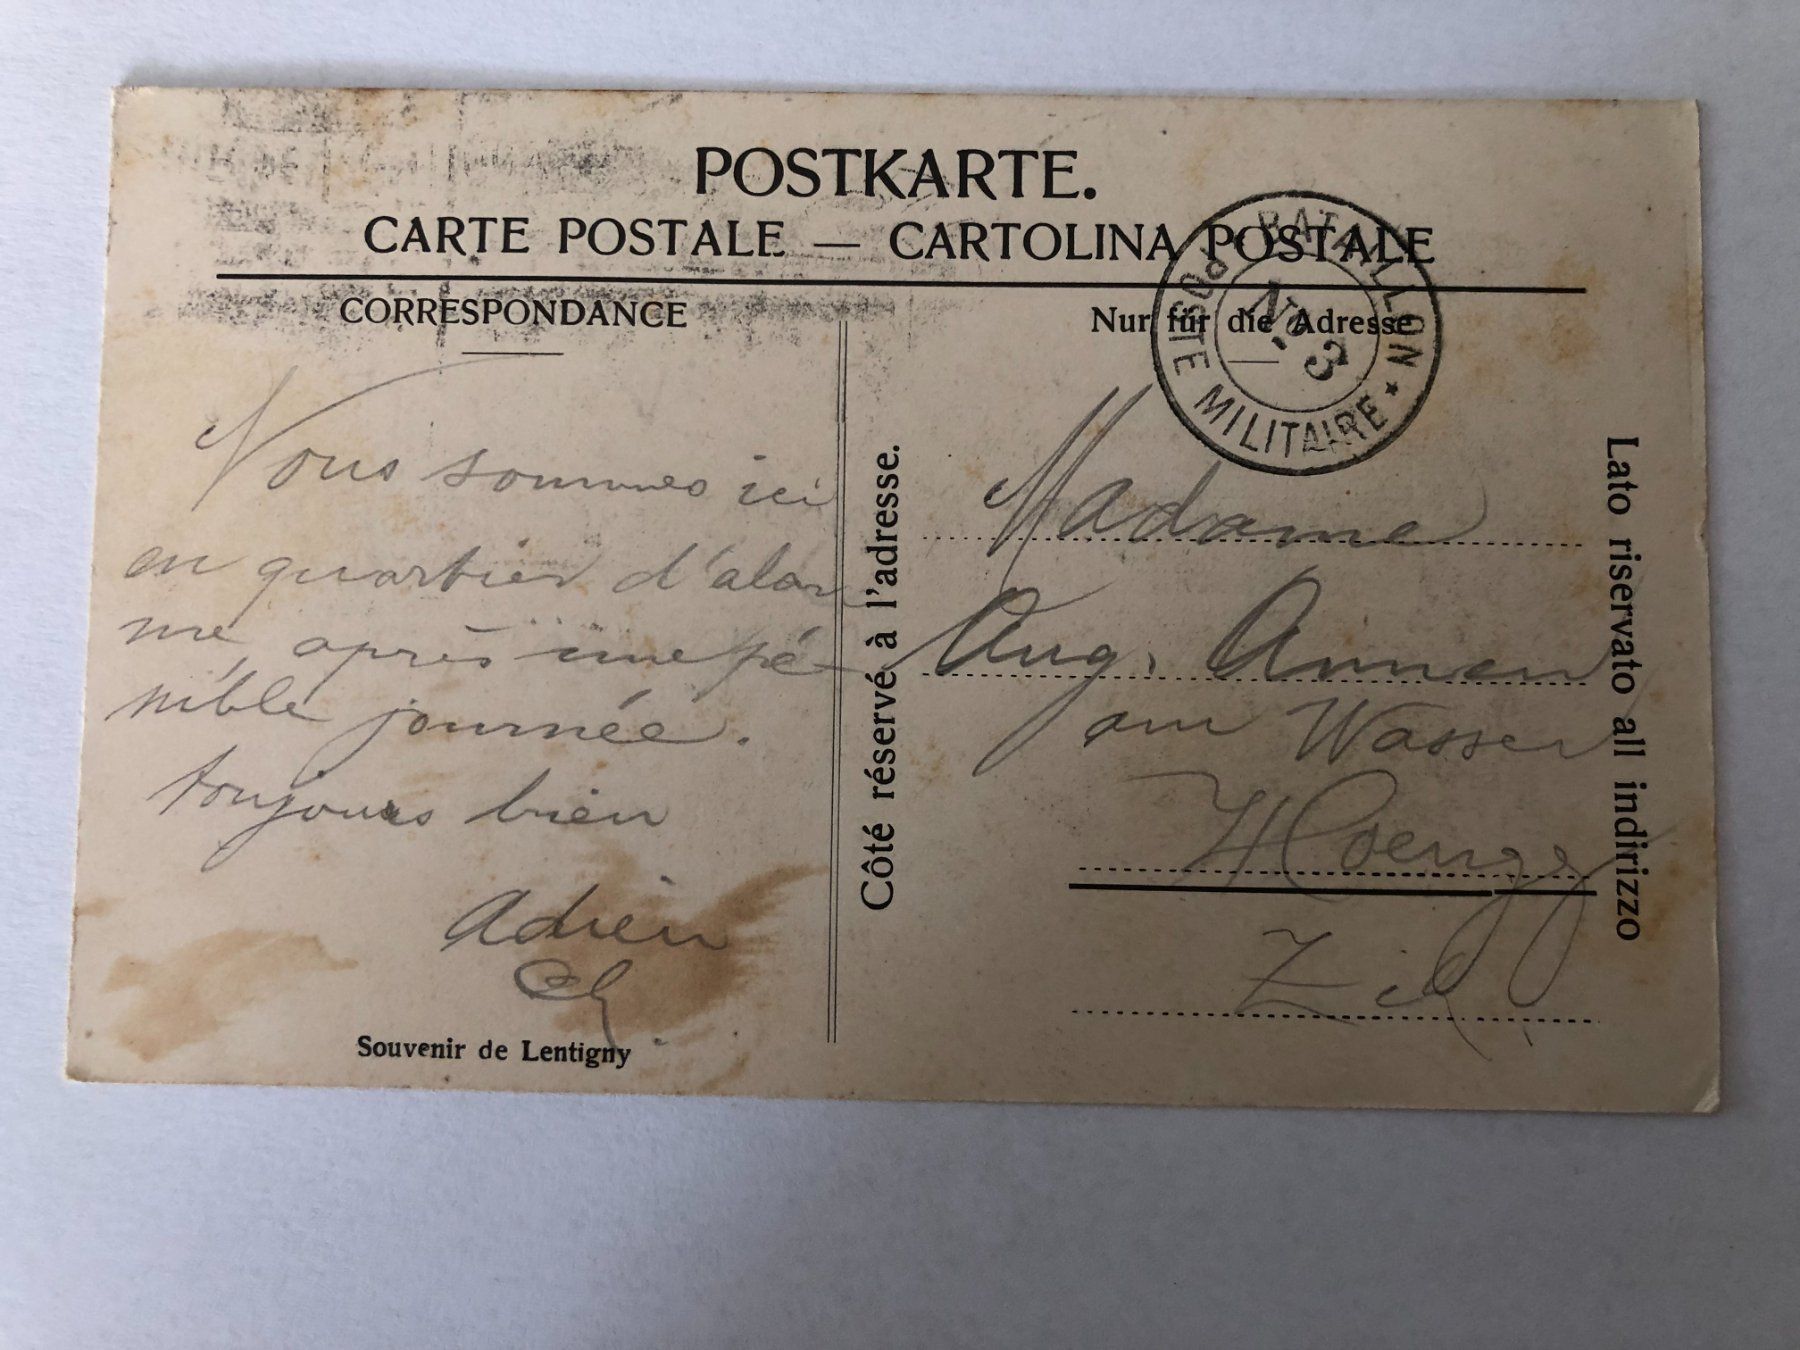 POSTKARTE.
CARTE POSTALE — CARTOLINA POSTALE
CORRESPONDANCE
Nous sommes ici
en quartier d'alar
me, après une pé-
nible journée.
toujours bien
Adrien
Souvenir de Lentigny
Côté réservé à l'adresse.
Nur für die Adresse
POSTE MILITAIRE * BATAILLON
No. 3
Madame
Aug. Annen
am Wasser
Hoengg
Zch
Lato riservato all indirizzo